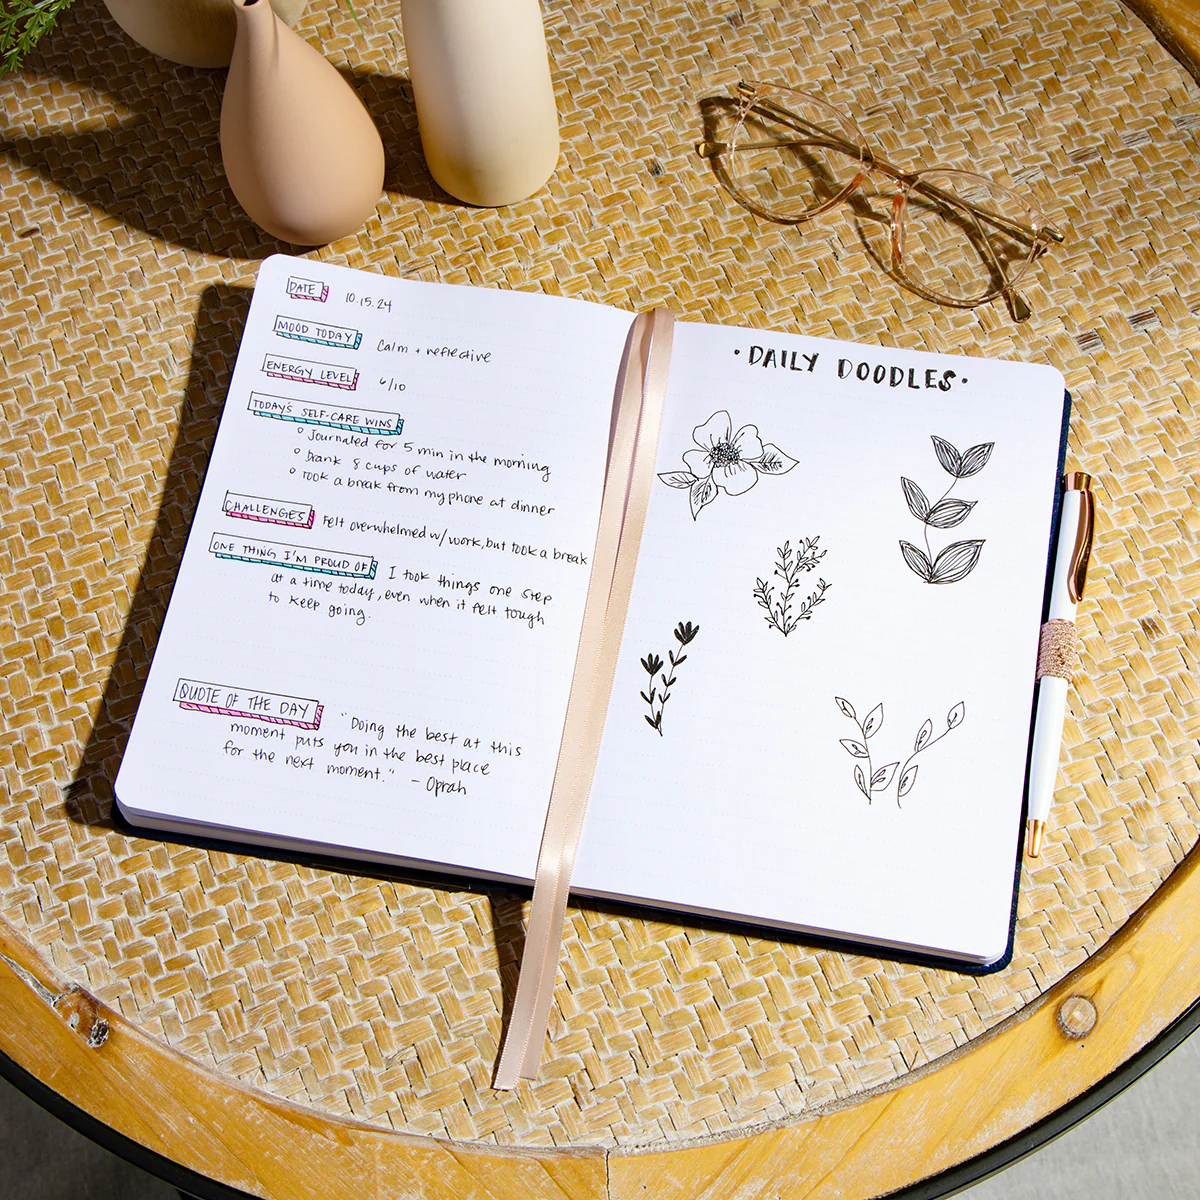 DATE 10.15.24
MOOD TODAY Calm + reflective
ENERGY LEVEL 6/10
TODAY'S SELF-CARE WINS
° Journaled for 5 min in the morning
° Drank 8 cups of water
° Took a break from my phone at dinner
CHALLENGES Felt overwhelmed w/ work, but took a break
ONE THING I'M PROUD OF I took things one step
at a time today, even when it felt tough
to keep going.
QUOTE OF THE DAY "Doing the best at this
moment puts you in the best place
for the next moment." - Oprah
• DAILY DOODLES •